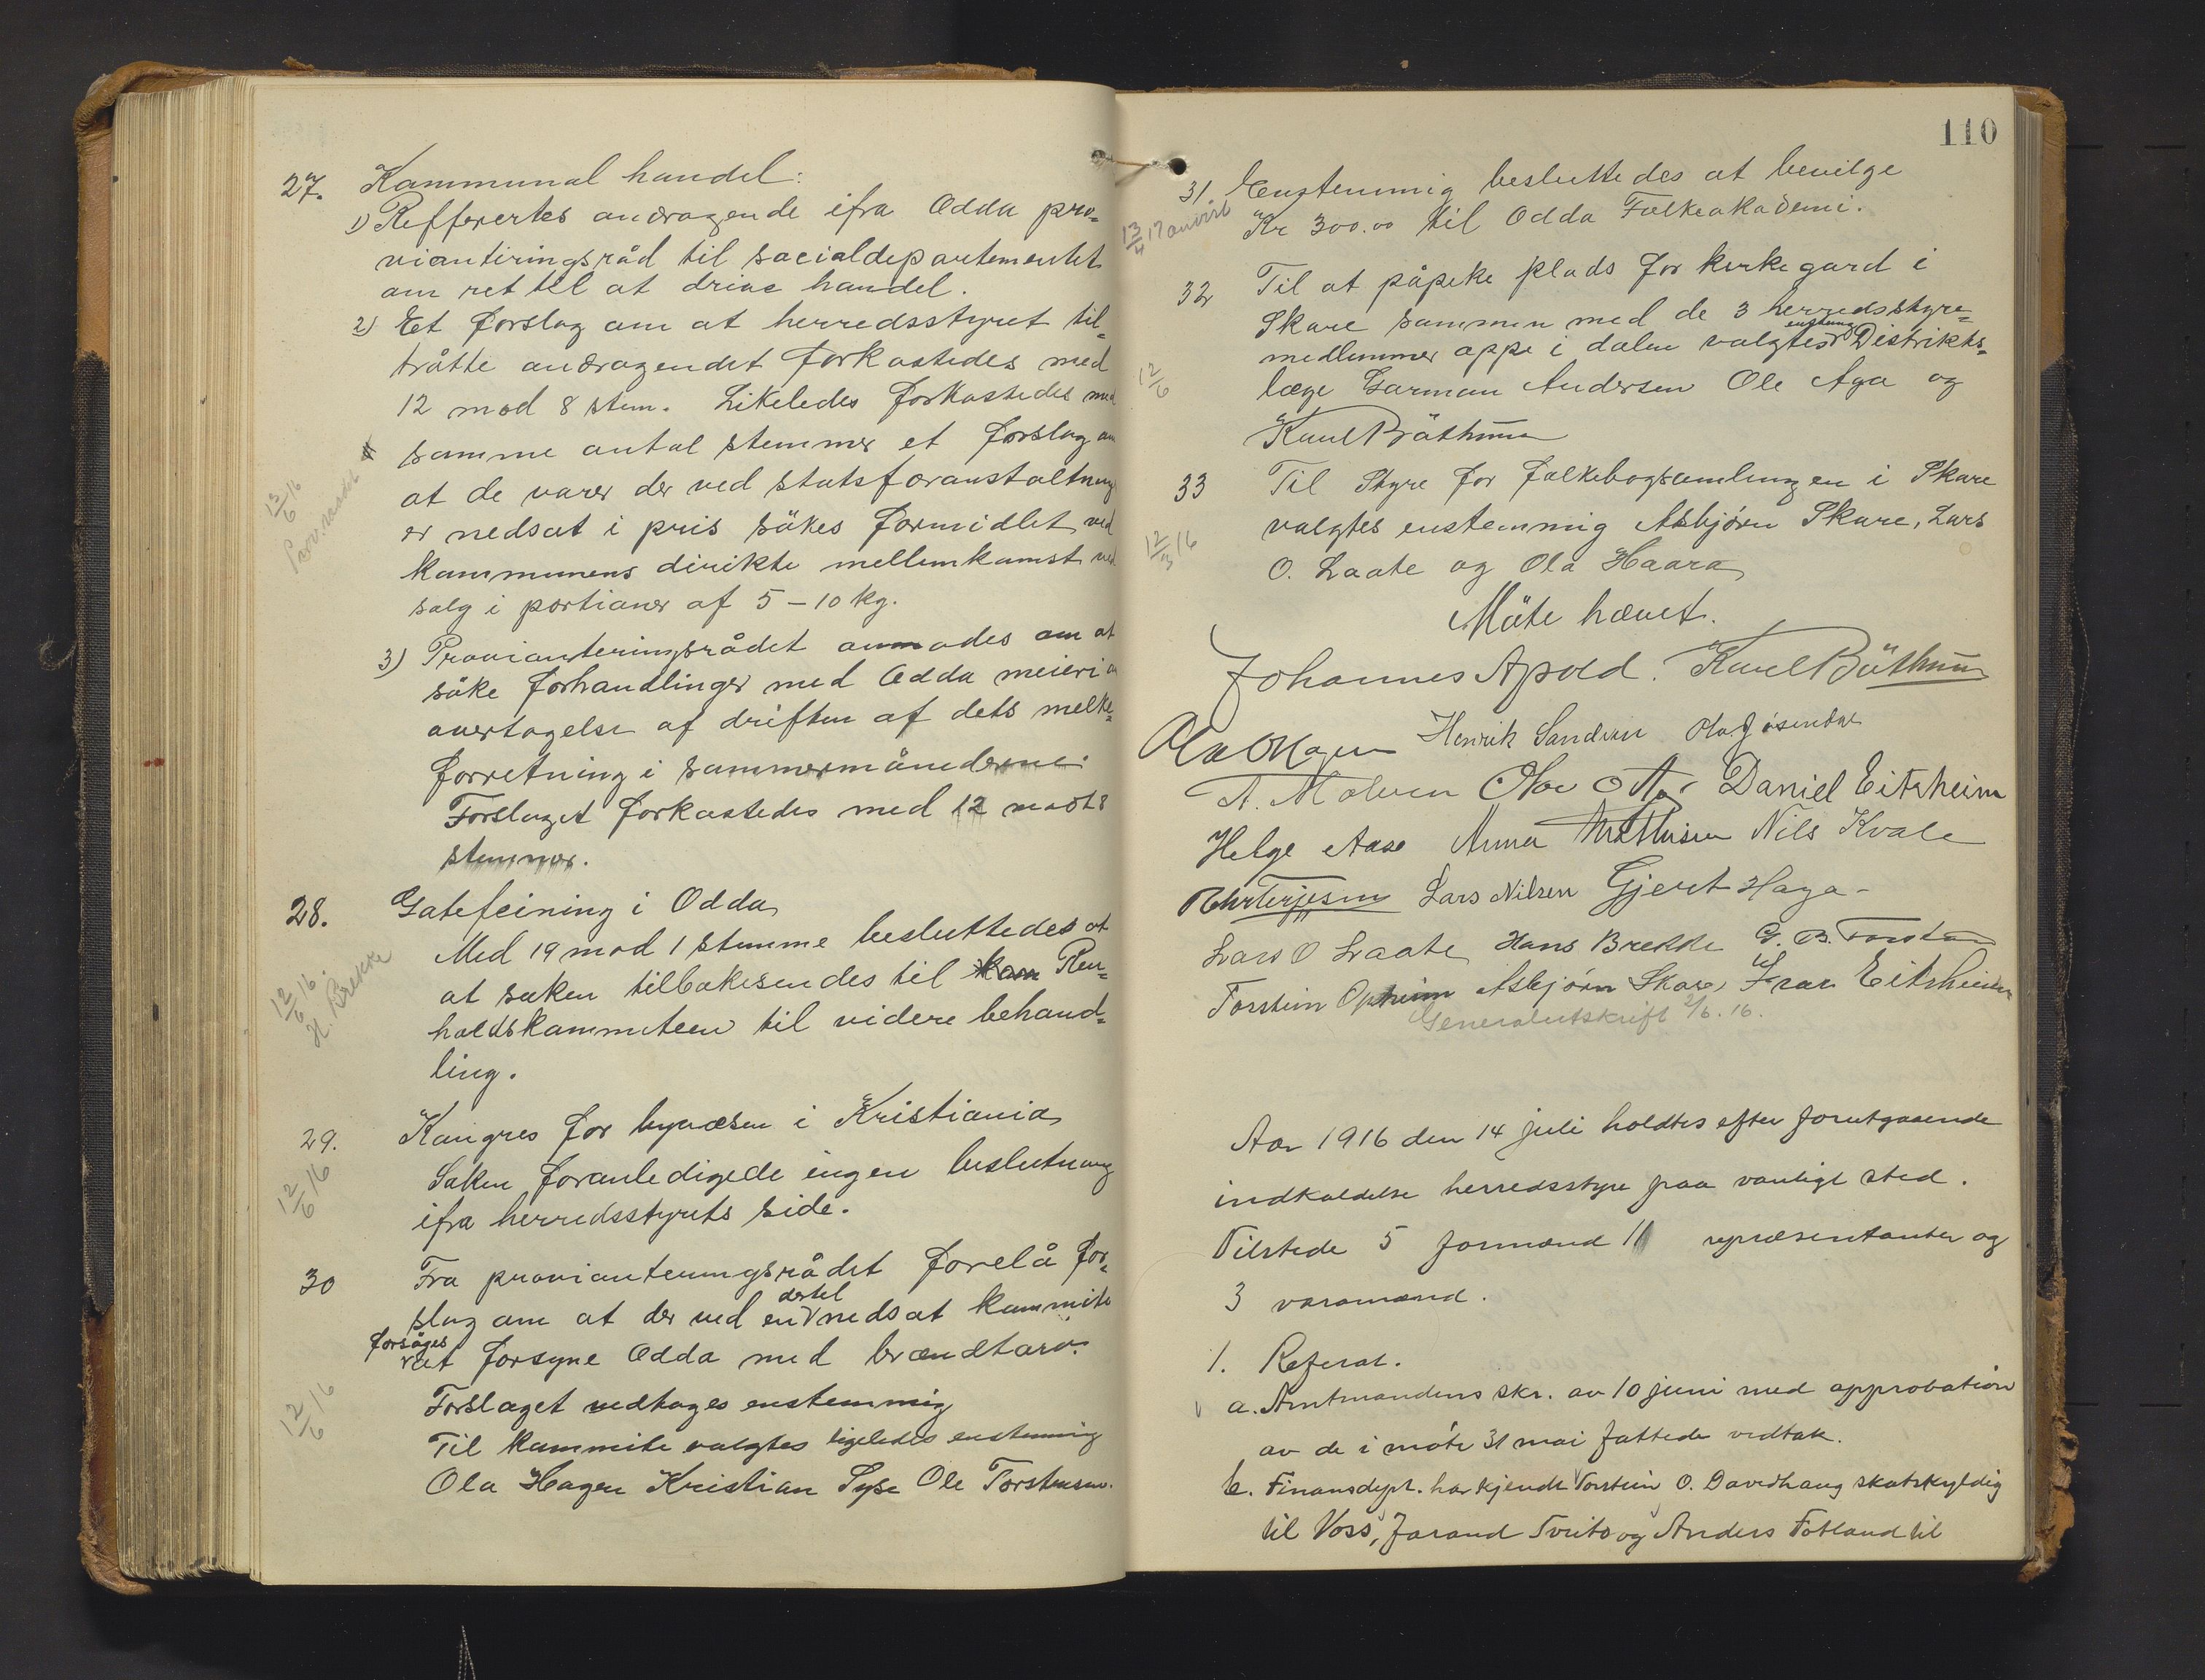 27. Kommunal handel:
1) Refferertes andragende ifra Odda pro-
viantiringsråd til socialdepartementet
om ret til at drive handel.
2) Et forslag om at herredsstyret til-
trådte andragendet forkastedes med
12 mod 8 stem. Likeledes forkastedes med
samme antal stemmer et forslag om
at de varer der ved statsforanstaltning
er nedsat i pris søkes formidlet ved
kommunens dirikte mellemkomst ved
salg i portioner af 5 – 10 kg.
12/6 16
Prov.raadet
3) Provianteringsrådet anmodes om at
søke forhandlinger med Odda meieri om
overtagelse af driften af dets melke-
forretning i sommermånederne.
Forslaget forkastedes med 12 mod 8
stemmer.
28. Gatefeining i Odda
Med 19 mod 1 stemme besluttedes at
at saken tilbakesendes til Ren-
holdskommiteen til videre behand-
ling.
12/6 16.
H. Brekke
29. Kongres for byvæsen i Kristiania
Saken foranledigede ingen beslutning
ifra herredsstyrets side.
12/6 16
30 Fra provianteringsrådet forelå for-
slag om at der ved en dertil nedsat kommite
forsøges at forsyne Odda med brændtorv.
Forslaget vedtoges enstemmig
Til kommite valgtes ligeledes enstemmig
Ola Hagen Kristian Syse Ole Torstensen.
12/6 16
110
31 Enstemmig besluttedes at bevilge
Kr 300.00 til Odda Folkeakademi.
13/4 17 anvist
32 Til at påpeke plads for kirkegard i
Skare sammen med de 3 herredsstyre-
medlemmer oppe i dalen valgtes enstemmig Distrikts-
læge Garman Andersen Ole Aga og
Karl Bøthun
12/6
33 Til Styre for folkebogsamlingen i Skare
valgtes enstemmig Asbjørn Skare, Lars
O. Laate og Ola Haara
12/3 16
Møte hævet.
Johannes Apold. Karl Bøthun
Ola Hagen Henrik Sandven Olaf Jøsendal
A. Malven Ole Aga Daniel Eitrheim
Helge Aase Anna Mathisen Nils Kvale
Terjesen Lars Nilsen Gjert Haga
Lars O Laate Hans Brekke G. B.
Torstein Opheim Asbjørn Skare Eitrheim
Generalutskrift 2/6. 16.
Aar 1916 den 14 juli holdtes efter forutgaaende
indkaldelse herredsstyre paa vanligt sted.
Tilstede 5 formænd 11 repræsentanter og
3 varamænd.
1. Referat.
a. Amtmandens skr. av 10 juni med approbation
av de i møte 31 mai fattede vedtak.
b. Finansdept. har kjendt Torstein O. Davidhaug skatskyldig
til Voss, Jarand Tveito og Anders Fotland til